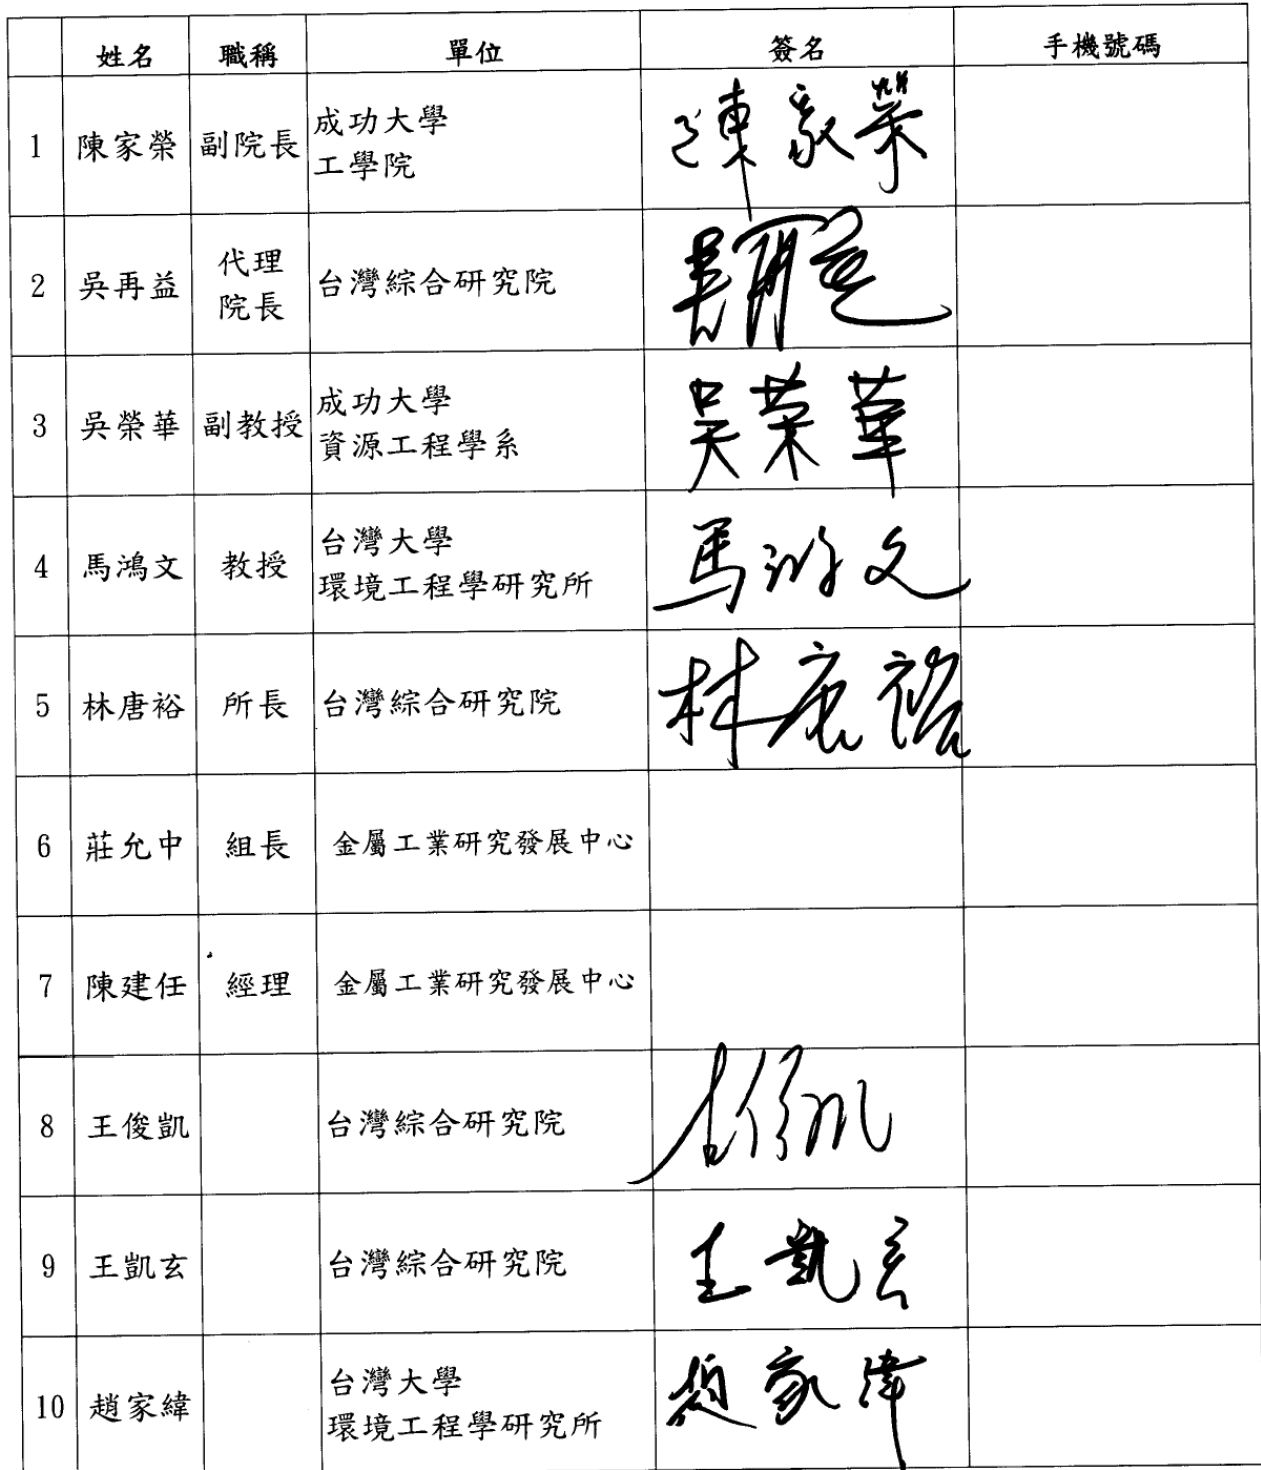 姓名 職稱 單位 簽名 手機號碼
1 陳家榮 副院長 成功大學
工學院 陳家榮
2 吳再益 代理
院長 台灣綜合研究院 吳再益
3 吳榮華 副教授 成功大學
資源工程學系 吳榮華
4 馬鴻文 教授 台灣大學
環境工程學研究所 馬鴻文
5 林唐裕 所長 台灣綜合研究院 林唐裕
6 莊允中 組長 金屬工業研究發展中心
7 陳建任 經理 金屬工業研究發展中心
8 王俊凱 台灣綜合研究院
9 王凱玄 台灣綜合研究院 王凱玄
10 趙家緯 台灣大學
環境工程學研究所 趙家緯